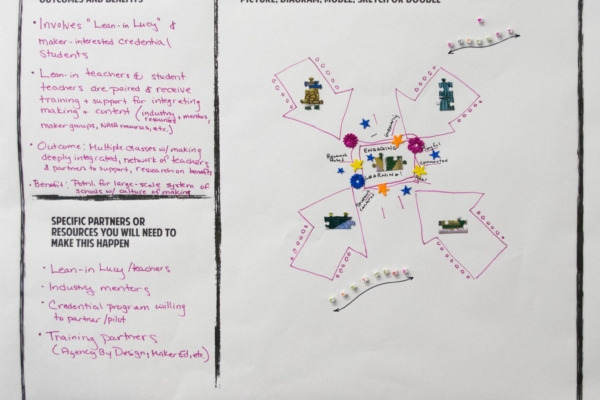 OUTCOMES AND BENEFITS
• Involves "Lean-in Lucy" &
maker-interested credential
students
• Lean-in teachers & student
teachers are paired & receive
training + support for integrating
making + content (industry, mentors,
resources
maker groups, NASA resources, etc.)
• Outcome: Multiple classes w/ making
deeply integrated, network of teachers
& partners to support, research on benefits
• Benefit: Potnl. for large-scale system of
schools w/ culture of making
SPECIFIC PARTNERS OR
RESOURCES YOU WILL NEED TO
MAKE THIS HAPPEN
• Lean-in Lucy/teachers
• Industry mentors
• Credential program willing
to partner/pilot
• Training partners
(Agency By Design, Maker Ed, etc)
PICTURE, DIAGRAM, MODEL, SKETCH OR DOODLE
ENGAGING
LEARNING!